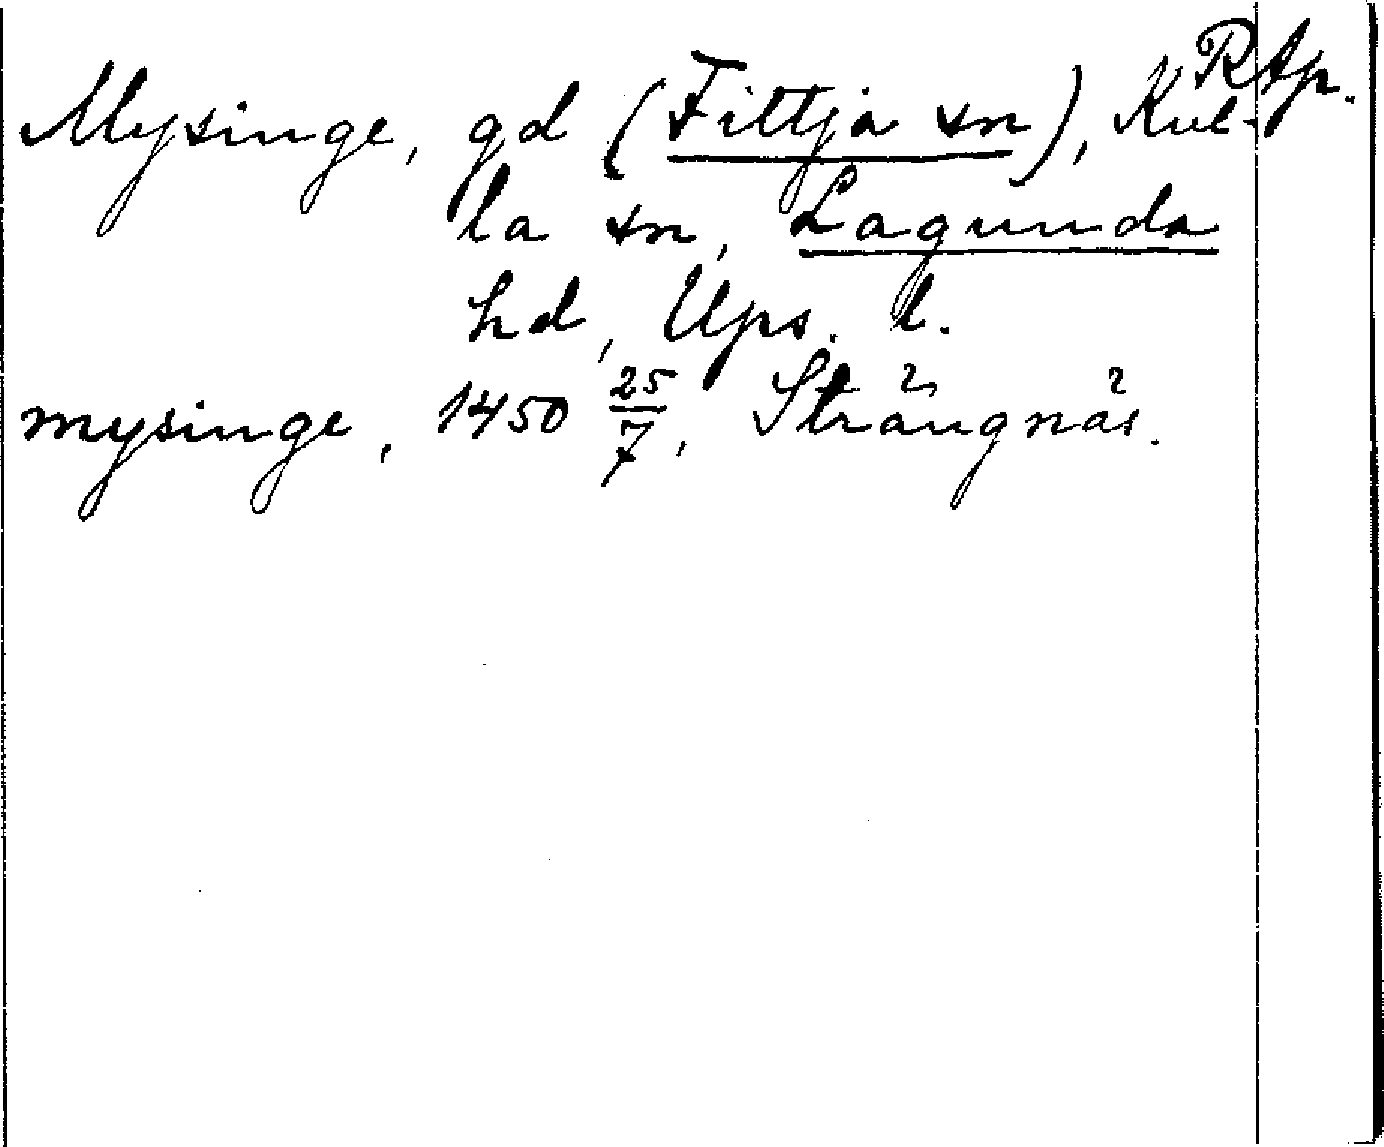 RAp.
Mysinge, gd (Fittja sn), Kul-
la sn, Lagunda
hd, Ups. l.
mysinge, 1450 25/7, Strängnäs.